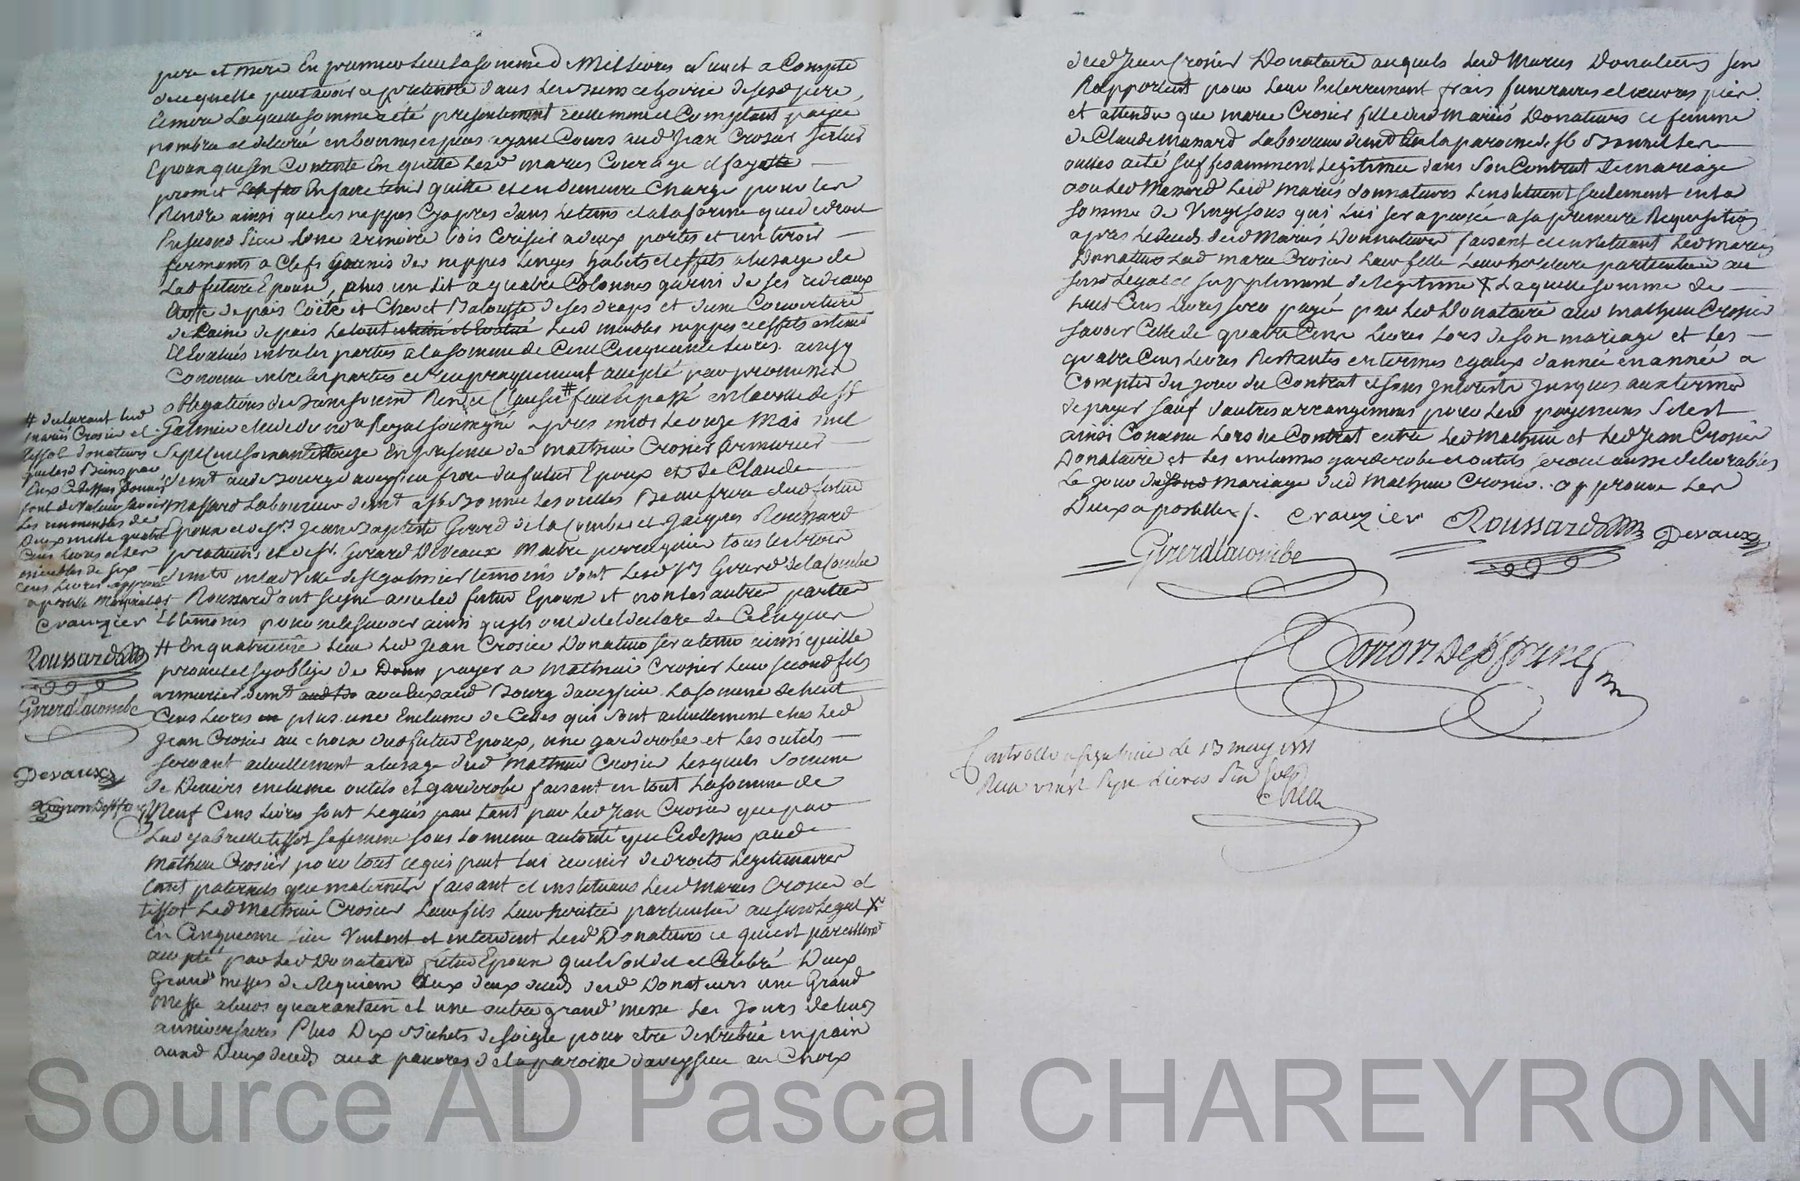 pere et mere En premier lieu la somme de Mil livres et un et a Compte
de ce quelle peut avoir a pretendre dans les biens et hoirie de sesd pere
Et mere Laquelle somme a été presentement reellement et Comptant payée
nombrée et delivrée en bonnes especes ayant Cours aud Jean Crosier futur
Epoux qui sen Contente En quitte lesd mariés Courbage et fayolle
promet En faire tenir quitte et en demeure Chargé pour les
Rendre ainsi que les nippes Cyapres dans le tems et a la forme que de droit
En second lieu Dune armoire bois Cerisier a deux portes et un tiroir
fermants a Clefs garnis des nippes Linges habits et effets a lusage de
Lad future Epouse, plus un Lit a quatre Colonnes garni de ses rideaux
de pais Coëte et Chevet Balouffe de ses draps et dune Couverture
de Laine de pais Le tout Lesd meubles nippes et effets estimés
et Evalués entre les parties a la somme de Cent Cinquante Livres. ainsy
Convenu entre les parties et reciproquement accepté par promesses
obligations de biens soumis Renon Clauses # fait et passé en la ville de St
Galmier etude du no.re Royal soussigné apres midi le onze Mai mil
sept Cent soixante en presence de mathieu Crosier armurier
demt aud Bourg daveysieu frere du futur Epoux et de Claude
Massard Laboureur demt a St Bonnet Les oulles Beaufrere dud futur
Epoux et de Srs Jean Baptiste Girerd de la Combe et Jacques Roussard
praticiens et de Sr Girard Deveaux Maitre perruquier tous les trois
demts en lad ville de St galmier temoins dont lesd Srs Girard de la Combe
et Roussard ont signé avec led futur Epoux et non les autres parties
et temoins pour ne le savoir ainsi qu'ils ont dit et declaré de Ce Enquis
# En quatrieme Lieu Led Jean Crosier Donataire sera tenu ainsi quil le
promet et s'oblige de payer a Mathieu Crosier leur second fils
armurier demt avec Eux aud Bourg daveysieu La somme de huit
Cens Livres plus une Enclume de Celles qui sont actuellement chez Led
Jean Crosier au choix dud futur Epoux, une garderobe et Les outils
servant actuellement a lusage dud Mathieu Crosier Lesquels somme
de Deniers enclume outils et garderobe faisant en tout La somme de
Neuf Cens Livres sont Legués par tant par Led Jean Crosier que par
Lad gabrielle tissot sa femme sous la meme autorité que Cedessus aud
Mathieu Crosier pour tout ce qui peut lui revenir de droits Legitimaires
tant paternels que maternels faisant et instituans Lesd Mariés Crosier et
tissot Led Mathieu Crosier Leur fils Leur heritier particulier au susd Legat X
En Cinquieme Lieu Veulent et entendent Lesd Donateurs ce qui est pareillemt
accepté par Led Donataire futur Epoux quil soit dit et Celebré Deux
Grand messes de Requiem aux deux deceds desd Donateurs une Grand
Messe a leurs quarantain et une autre grand messe Les Jours de leurs
anniversaires Plus Dix Bichets de seigle pour etre distribué en pain
auxd Deux deceds aux pauvres de la paroisse daveysieu au Choix
# declarant lesd
mariés Crosier et
tissot donateurs
que lesd Biens par
Eux Cedessus Donnés
sont de valeur savoir
Les immeubles de
Deux mille quatre
Cens Livres et Les
meubles de six
Cens Livres approuvé
apostille Marginale
Crauzier
Roussard
Girerdlacombe
Devaux
dud Jean Crosier Donataire auxquels lesd Mariés Donateurs sen
Rapportent pour Leur Enterrement frais funeraires et oeuvres pies.
et attendu que marie Crosier fille desd Mariés Donateurs et femme
de Claude Massard Laboureur demt en la paroisse de St Bonnet Les
oulles a été suffisamment Legitimée dans son Contrat de mariage
avec led Massard Lesd mariés donnateurs L'instituent seulement en la
somme de Vingt sous qui lui sera payée a sa premiere Requisition
apres Le deceds desd Mariés Donnateurs faisant et instituant Lesd mariés
Donateurs Lad marie Crosier Leur fille Leur heritiere particuliere au
susd Legat et supplement de legitime X Laquelle somme de
huit Cens Livres sera payée par Led Donataire aud Mathieu Crosier
savoir Celle de quatre Cens Livres Lors de son mariage et Les
quatre Cens Livres Restantes en termes egaux d'année en année a
Compter du jour du Contrat et sans Interests jusques aux termes
de payer sauf d'autres arrangemens pour Lesd payemens S'etant
ainsi Convenu Lors du Contrat entre Led Mathieu et Led Jean Crosier
Donataire et Les enclumes garderobe et outils seront aussi delivrables
Le Jour du Mariage dud Mathieu Crosier. approuvé Les
Deux apostilles /.
Crauzier Roussard Devaux
Girerdlacombe
Controllé a St galmier le 13 may
Reçu vingt sept Livres
Source AD Pascal CHAREYRON